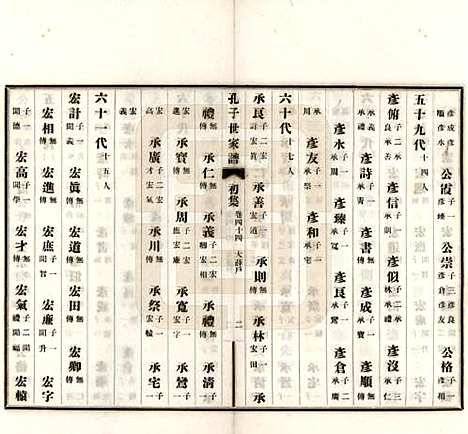 彥成彥順彥水 公霞 彥臻 公崇 子三彥倉彥友彥良 公格 子一
五十九代 十四人
彥俯 子二承良承善 彥信 子一承則 彥似 子二承林 彥沒 子三承
承義 彥詩 子一承 彥書 無傳 彥成 子一承 彥順 無傳
彥水 子一承周 彥臻 子一承寬 彥良 子一承鸞 彥倉 子二承廣
承川 彥友 子一承祭 彥和 子一承宅
六十代 十七人
承良 子一宏眞 承善 子一宏道 承則 無傳 承林 子一宏田 承
孔子世家譜 初集 卷四十四 大薛戶 二
禮 無傳 承仁 無傳 承義 子二宏相 承禮 無傳 承清 子一
宏 承寶 無傳 承周 子二宏廡 承寬 子一宏宇 承鸞 子一宏
高 承廣 子二宏才宏氣 承川 無傳 承祭 子一宏 承宅 子一宏
義
六十一代 十五人
宏計 子一聞義 宏眞 無傳 宏道 無傳 宏田 無傳 宏卿 無傳
宏相 無傳 宏進 無傳 宏廡 子一聞智 宏廉 子一聞升 宏宇
子一聞德 宏高 子一聞學 宏才 無傳 宏氣 子二聞禮聞福 宏檳